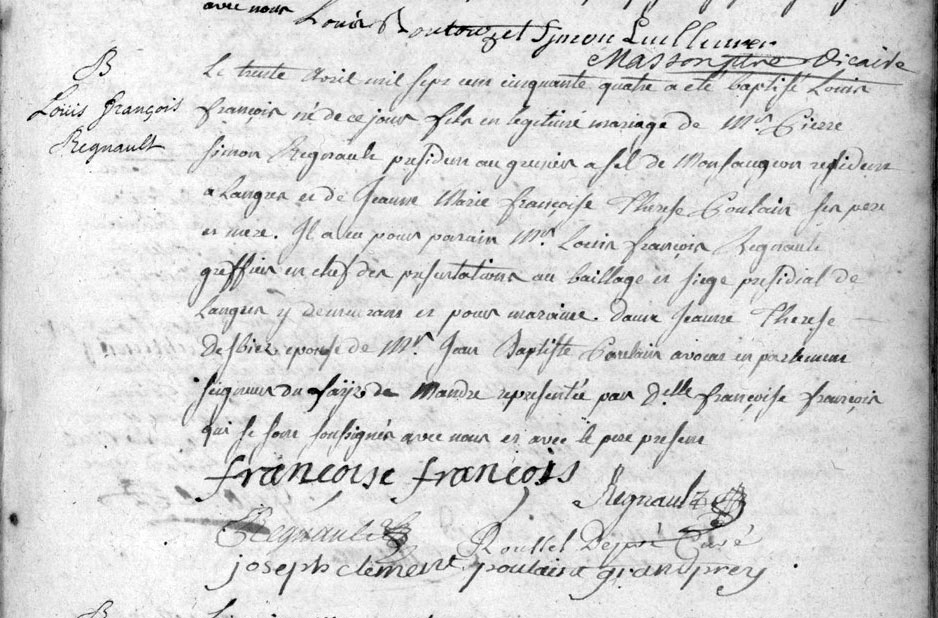 avec nous Louis Routouz et Simon Luillemer
Masson ptre Vicaire
B
Louis François
Regnault
Le trente Avril mil sept cent cinquante quatre a eté baptisé Louis
françois né de ce jour fils en legitime mariage de Mr Pierre
Simon Regnault president au grenier a sel de Monsaugeon resident
a Langres et de Jeanne Marie françoise Therese Poulain ses pere
et mere. Il a eu pour parain Mr Louis françois Regnault
greffier en chef des presentations au baillage et siege presidial de
Langres y demeurant et pour maraine dame Jeanne Therese
Desbiez epouse de Mr Jean Baptiste Poulain avocat en parlement
seigneur du fays de Mandre representée par Delle françoise françois
qui se sont soussignés avec nous et avec le pere present
françoise françois
Regnault
Regnault
Roussel Despré Curé
joseph clement poulain grandprey
B